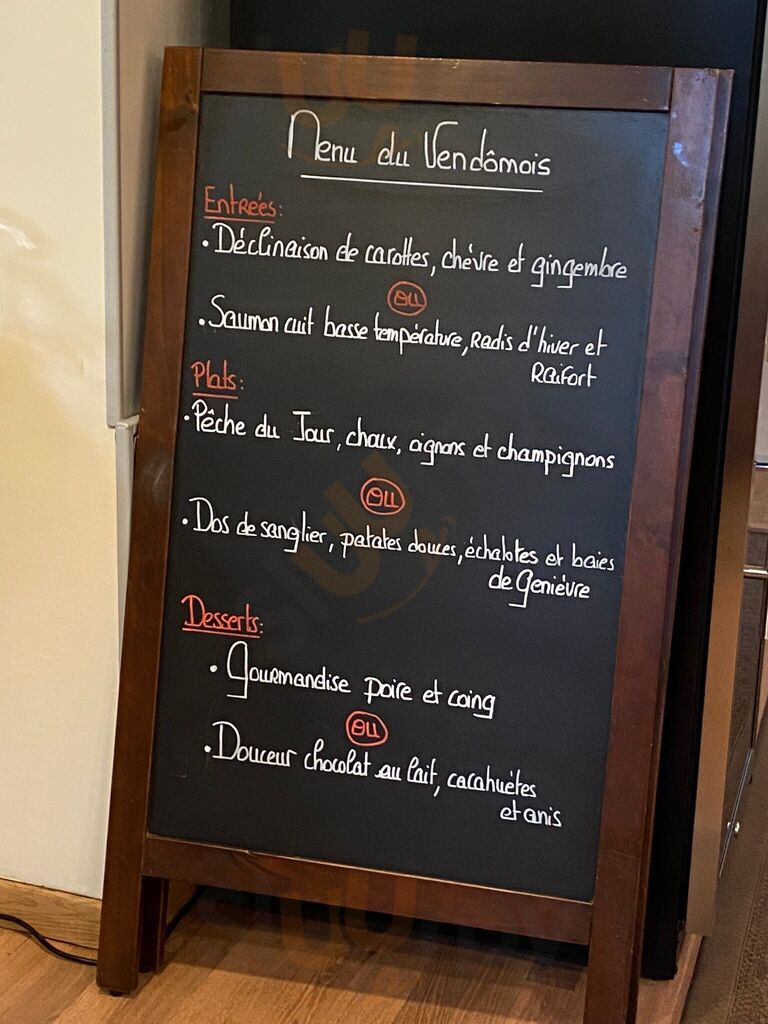 Menu du Vendômois
Entrées:
• Déclinaison de carottes, chèvre et gingembre
OU
• Saumon cuit basse température, Radis d'hiver et
Raifort
Plats:
• Pêche du Jour, choux, oignons et champignons
OU
• Dos de sanglier, patates douces, échalotes et baies
de Genièvre
Desserts:
• Gourmandise poire et coing
OU
• Douceur chocolat au lait, cacahuètes
et anis